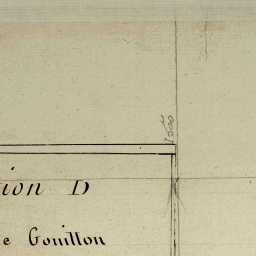 tion D
e Gouillon